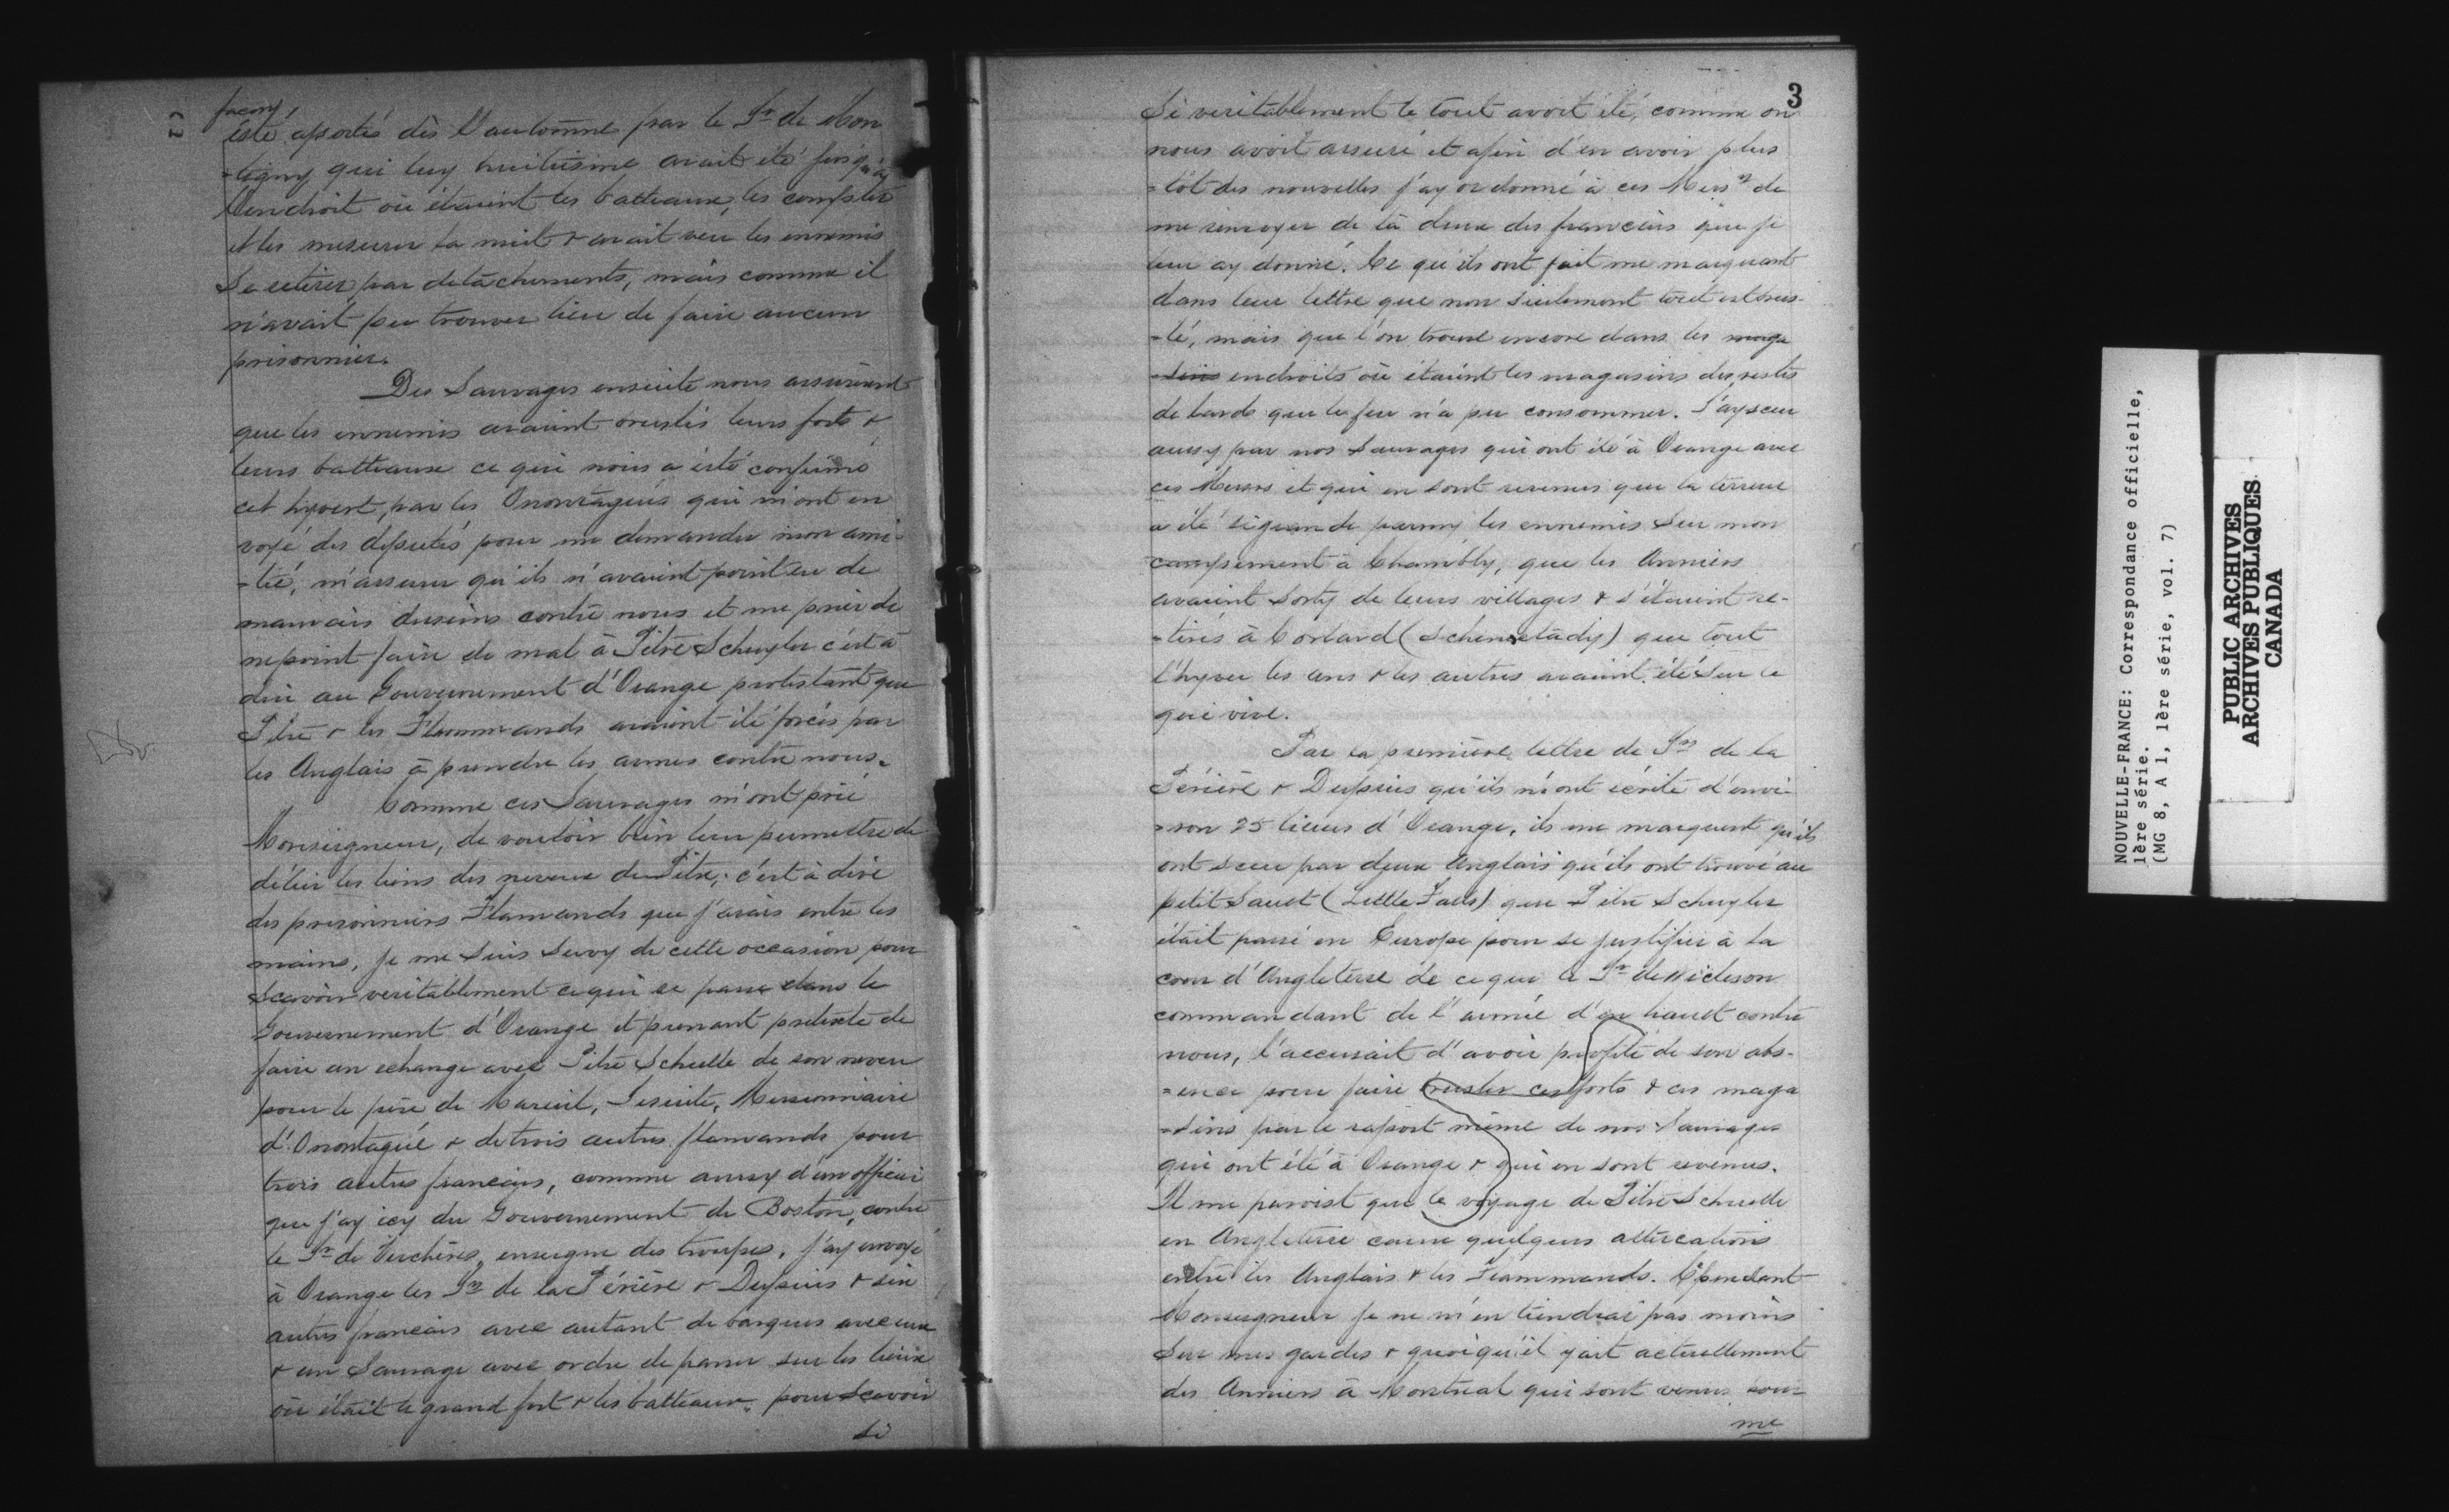 façon
été aportés dès l'automne par le Sr de Mon
-tigny qui luy huitiesme avait été jusqu'à
l'endroit où étaient les batteaux, les compter
et les mesurer la nuit & avait veu les ennemis
Se retirer par détachements, mais comme il
n'avait peu trouver lieu de faire aucun
prisonnier.
Des Sauvages ensuite nous assurèrent
que les ennemis avaient bruslés leurs forts &
leurs batteaux ce qui nous a esté confirmé
cet hyvert, par les Onontagués qui m'ont en
voyé des députés pour me demander mon ami-
-tié, m'assurer qu'ils n'avaient point eu de
mauvais desseins contre nous et me prier de
ne point faire de mal à Pitre Schuyler c'est à
dire au Gouvernement d'Orange protestant que
Pitre & les Flammands avaient été forcés par
les Anglais à prendre les armes contre nous.
Comme ces Sauvages m'ont prié
Monseigneur, de vouloir bien leur permettre de
délier les liens des neveux de Pitre, c'est à dire
des prisonniers Flamands que j'avais entre les
mains, je me suis servy de cette occasion pour
Scavoir veritablement ce qui se passe dans le
Gouvernement d'Orange et prenant prétexte de
faire un echange avec Pitre Schulle de son neveu
pour le père de Mareuil, Jesuite, Missionnaire
d'Onontagué & de trois autres flamands pour
trois autres francois, comme aussy d'un officier
que j'ay icy du Gouvernement de Boston, contre
le Sr de Verchères, enseigne des troupes, j'ay envoyé
à Orange les Srs de la Périère & Dupuis & six
autres francais avec autant de barques avec eux
& un Sauvage avec ordre de passer sur les lieux
où était le grand fort & les batteaux, pour Scavoir
si
3
Si veritablement le tout avoit été, comme on
nous avoit asseuré et afin d'en avoir plus
-tôt des nouvelles j'ay ordonné à ces Messrs de
me renvoyer de là deux des francais que je
leur ay donné. Ce qu'ils ont fait me marquant
dans leur lettre que non seulement tout est brus-
-lé, mais que l'on trouve encore dans les maga
-sins endroits où étaient les magasins des restes
de lards que le feu n'a pu consommer. J'ay sceu
aussy par nos Sauvages qui ont été à Orange avec
ces Messrs et qui en sont revenus que la terreur
a été si grande parmy les ennemis Sur mon
campement à Chambly, que les Anniers
avaient Sorty de leurs villages & s'étaient re-
-tirés à Corlard (Schenectady) que tout
l'hyver les uns & les autres avaient été Sur le
qui vive.
Par la première lettre de Srs de la
Périère & Dupuis qu'ils m'ont écrite d'envi-
-ron 25 lieues d'Orange, ils me marquent qu'ils
ont sceu par deux Anglais qu'ils ont trouvé au
petit Sault (Little Falls) que Pitre Schuyler
était passé en Europe pour se justifier à la
cour d'Angleterre de ce que le Sr de Nicleson
commandant de l'armée d'en haut contre
nous, l'accusait d'avoir profité de son abs-
-ence pour faire brusler ces forts & ces maga
-sins par le raport même de nos Sauvages
qui ont été à Orange & qui en sont revenus.
Il me paroist que le voyage de Pitre Schulle
en Angleterre cause quelques altercations
entre les Anglais & les Flammands. Cependant
Monseigneur je ne m'en tiendrai pas moins
Sur mes gardes & quoiqu'il y ait actuellement
des Anniers à Montréal qui sont venus pour
me
NOUVELLE-FRANCE: Correspondance officielle,
1ère série.
(MG 8, A 1, 1ère série, vol. 7)
PUBLIC ARCHIVES
ARCHIVES PUBLIQUES
CANADA